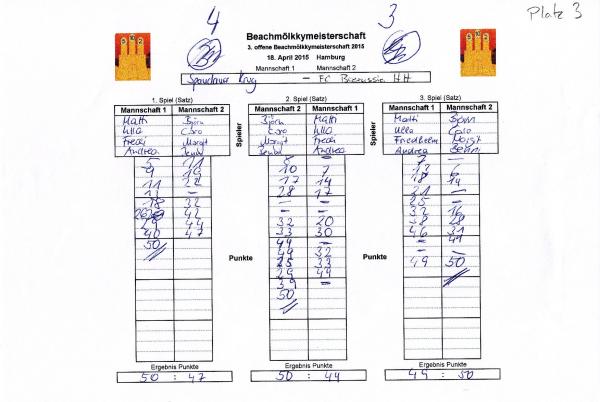 4 3 Platz 3
Beachmölkkymeisterschaft
3. offene Beachmölkkymeisterschaft 2015
18. April 2015 Hamburg
Mannschaft 1 Mannschaft 2
Spandauer Krug – FC Bierussia HH
1. Spiel (Satz) 2. Spiel (Satz) 3. Spiel (Satz)
Mannschaft 1 Mannschaft 2 Mannschaft 2 Mannschaft 1 Mannschaft 1 Mannschaft 2
Matti Björn Björn Matti Matti Björn
Ulla Caro Caro Ulla Ulla Caro
Fredi Margit Margit Fredi Friedhelm Margit
Andrea Andrea Andrea
Spieler Spieler
5 11 8 – 7 –
9 19 10 7 13 6
11 22 17 14 18 14
11 – 28 17 21 –
18 32 – – 25 –
42 – – 32 16
44 32 20 38 28
40 47 33 30 46 31
50 44 – – 41
44 32 –
25 33 49 50
29 44
39 –
50
Punkte Punkte
Ergebnis Punkte Ergebnis Punkte Ergebnis Punkte
50 : 47 50 : 44 49 : 50